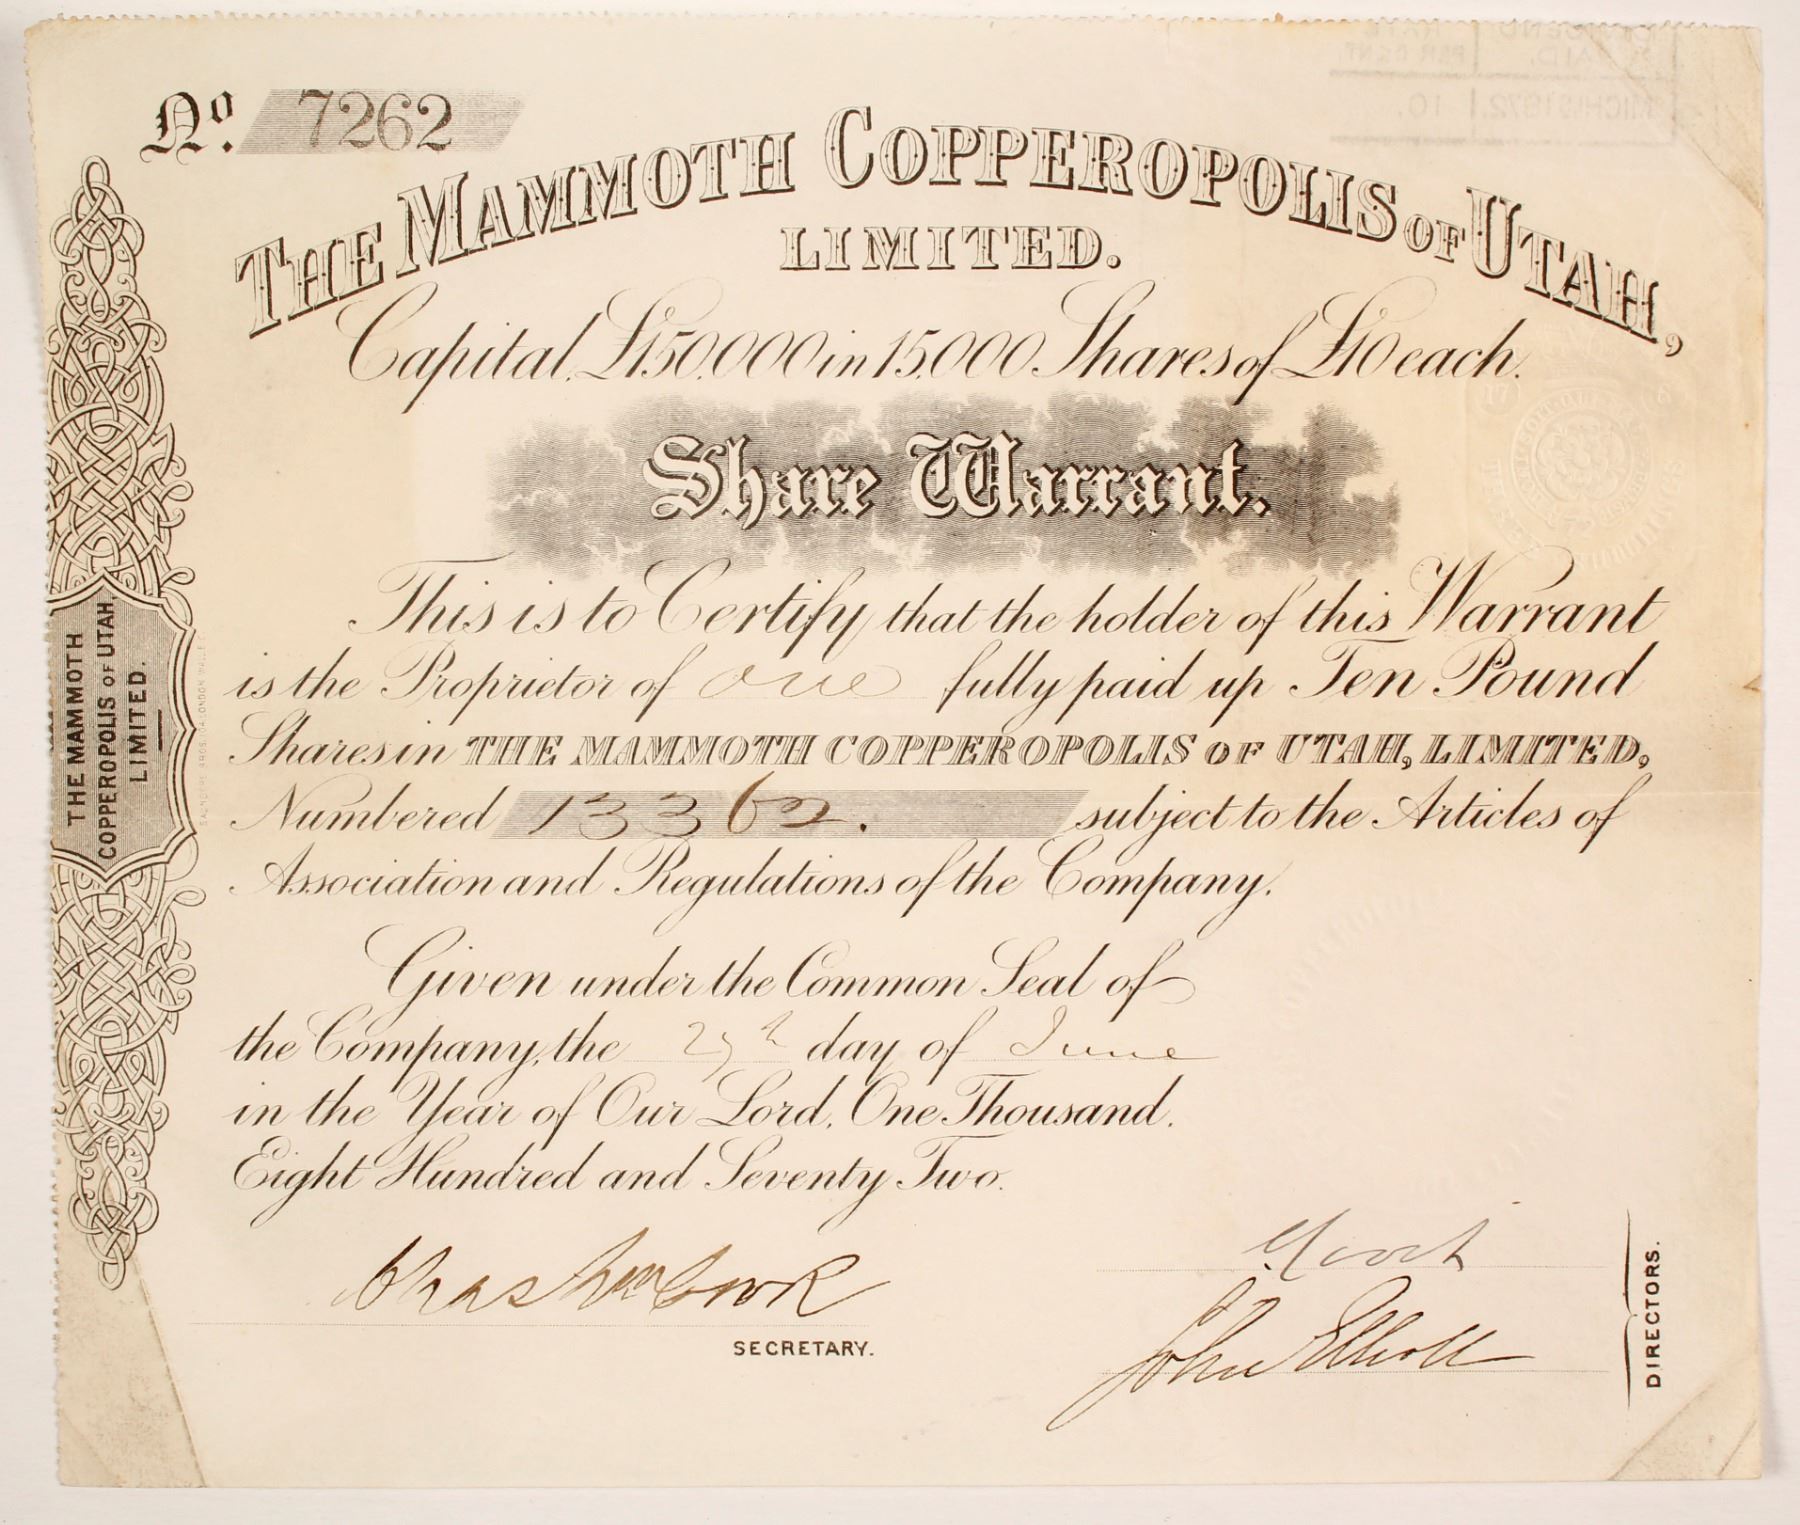 No. 7262
THE MAMMOTH COPPEROPOLIS OF UTAH,
LIMITED.
Capital, £150,000 in 15,000 Shares of £10 each.
Share Warrant.
This is to Certify that the holder of this Warrant
is the Proprietor of one fully paid up Ten Pound
Shares in THE MAMMOTH COPPEROPOLIS OF UTAH, LIMITED,
Numbered 13362. subject to the Articles of
Association and Regulations of the Company.
Given under the Common Seal of
the Company, the day of June
in the Year of Our Lord, One Thousand.
Eight Hundred and Seventy Two.
SECRETARY.
John Elliott
DIRECTORS.
THE MAMMOTH
COPPEROPOLIS OF UTAH,
LIMITED.